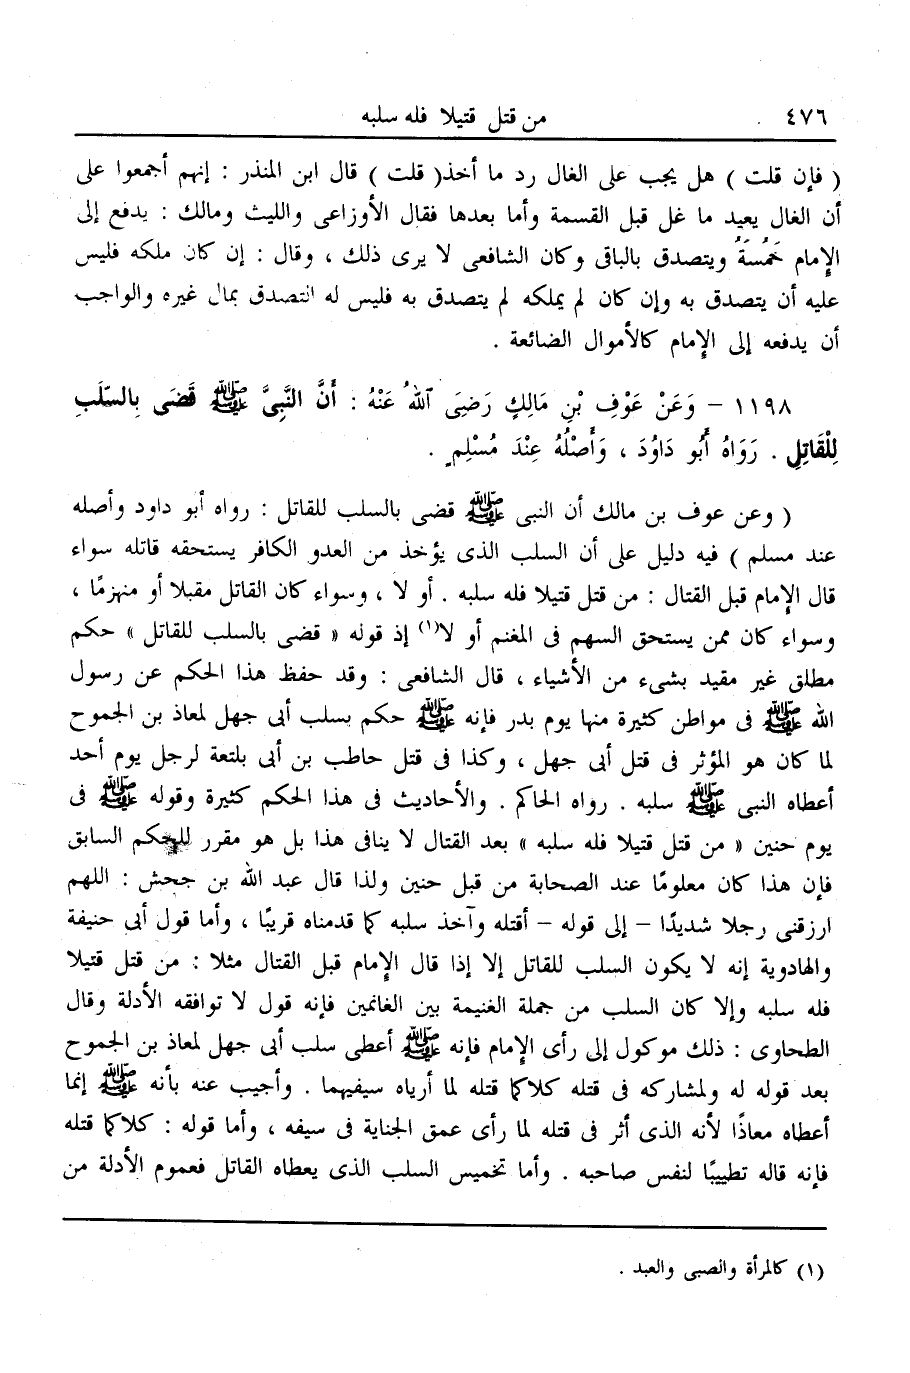 ٤٧٦ من قتل قتيلا فله سلبه
( فإن قلت ) هل يجب على الغال رد ما أخذ( قلت ) قال ابن المنذر : إنهم أجمعوا على
أن الغال يعيد ما غل قبل القسمة وأما بعدها فقال الأوزاعى والليث ومالك : يدفع إلى
الإمام خَمُسَهُ ويتصدق بالباقى وكان الشافعى لا يرى ذلك ، وقال : إن كان ملكه فليس
عليه أن يتصدق به وإن كان لم يملكه لم يتصدق به فليس له التصدق بمال غيره والواجب
أن يدفعه إلى الإمام كالأموال الضائعة .
١١٩٨ – وَعَنْ عَوْفِ بْنِ مَالِكٍ رَضِىَ ٱللهُ عَنْهُ : أَنَّ النَّبِىَّ ﷺ قَضَى بِالسَّلَبِ
لِلْقَاتِلِ . رَوَاهُ أَبُو دَاوُدَ ، وَأَصْلُهُ عِنْدَ مُسْلِمٍ .
( وعن عوف بن مالك أن النبى ﷺ قضى بالسلب للقاتل : رواه أبو داود وأصله
عند مسلم ) فيه دليل على أن السلب الذى يؤخذ من العدو الكافر يستحقه قاتله سواء
قال الإمام قبل القتال : من قتل قتيلا فله سلبه . أو لا ، وسواء كان القاتل مقبلا أو منهزمًا ،
وسواء كان ممن يستحق السهم فى المغنم أو لا(١) إذ قوله « قضى بالسلب للقاتل » حكم
مطلق غير مقيد بشىء من الأشياء ، قال الشافعى : وقد حفظ هذا الحكم عن رسول
الله ﷺ فى مواطن كثيرة منها يوم بدر فإنه ﷺ حكم بسلب أبى جهل لمعاذ بن الجموح
لما كان هو المؤثر فى قتل أبى جهل ، وكذا فى قتل حاطب بن أبى بلتعة لرجل يوم أحد
أعطاه النبى ﷺ سلبه . رواه الحاكم . والأحاديث فى هذا الحكم كثيرة وقوله ﷺ فى
يوم حنين « من قتل قتيلا فله سلبه » بعد القتال لا ينافى هذا بل هو مقرر للحكم السابق
فإن هذا كان معلومًا عند الصحابة من قبل حنين ولذا قال عبد الله بن جحش : اللهم
ارزقنى رجلا شديدًا – إلى قوله – أقتله وآخذ سلبه كما قدمناه قريبًا ، وأما قول أبى حنيفة
والهادوية إنه لا يكون السلب للقاتل إلا إذا قال الإمام قبل القتال مثلا : من قتل قتيلا
فله سلبه وإلا كان السلب من جملة الغنيمة بين الغانمين فإنه قول لا توافقه الأدلة وقال
الطحاوى : ذلك موكول إلى رأى الإمام فإنه ﷺ أعطى سلب أبى جهل لمعاذ بن الجموح
بعد قوله له ولمشاركه فى قتله كلاكما قتله لما أرياه سيفيهما . وأجيب عنه بأنه ﷺ إنما
أعطاه معاذًا لأنه الذى أثر فى قتله لما رأى عمق الجناية فى سيفه ، وأما قوله : كلاكما قتله
فإنه قاله تطييبًا لنفس صاحبه . وأما تخميس السلب الذى يعطاه القاتل فعموم الأدلة من
(١) كالمرأة والصبى والعبد .